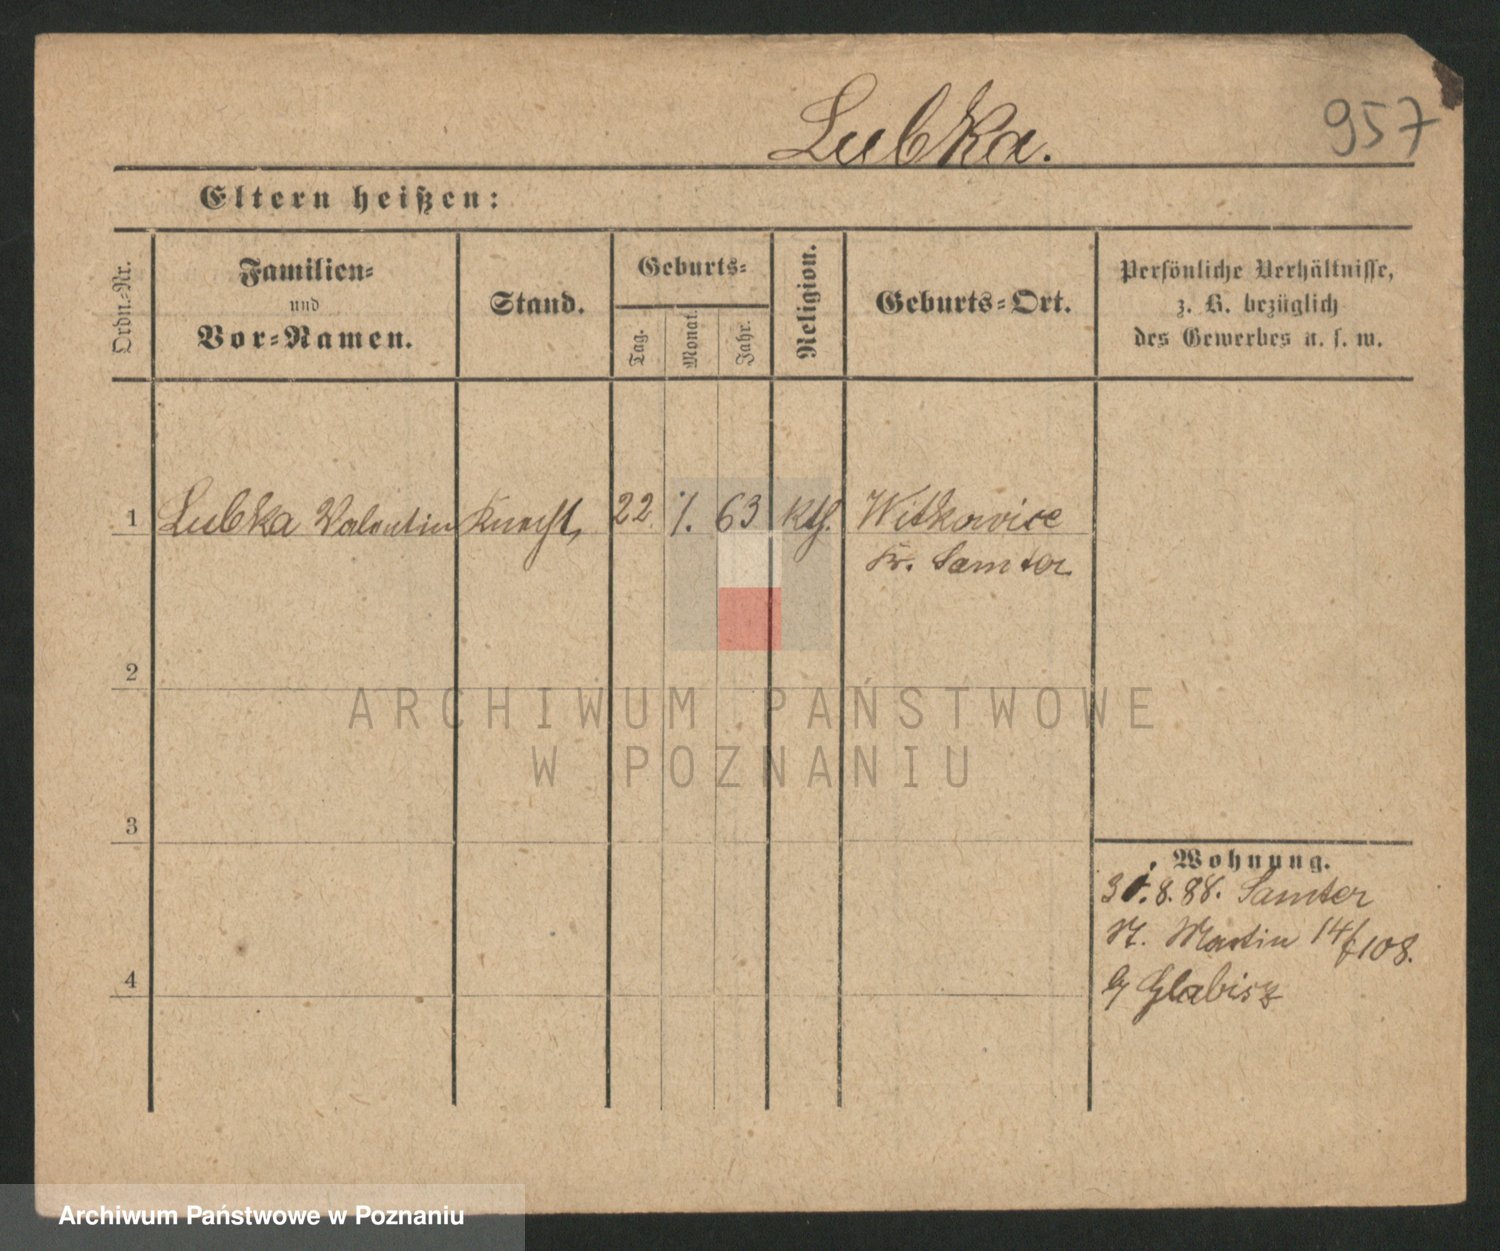 Lubka.
957
Eltern heißen:
Ordn.-Nr.
Familien-
und
Vor-Namen.
Stand.
Geburts-
Tag.
Monat.
Jahr.
Religion.
Geburts-Ort.
Persönliche Verhältnisse,
z. B. bezüglich
des Gewerbes u. s. w.
1 Lubka Valentin Knecht, 22. 63 kth. Witkowice
Kr. Samter
2
3
4
Wohnung.
8. 88. Samter
St. Martin 14/108.
Glabisz
ARCHIWUM PAŃSTWOWE
W POZNANIU
Archiwum Państwowe w Poznaniu